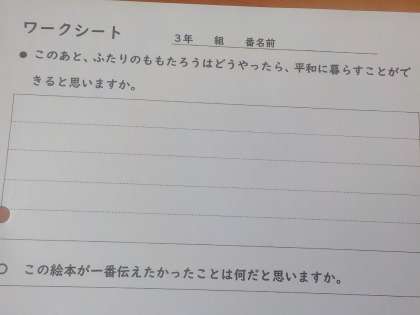 ワークシート
3年　組　番名前
● このあと、ふたりのももたろうはどうやったら、平和に暮らすことがで
きると思いますか。
○ この絵本が一番伝えたかったことは何だと思いますか。